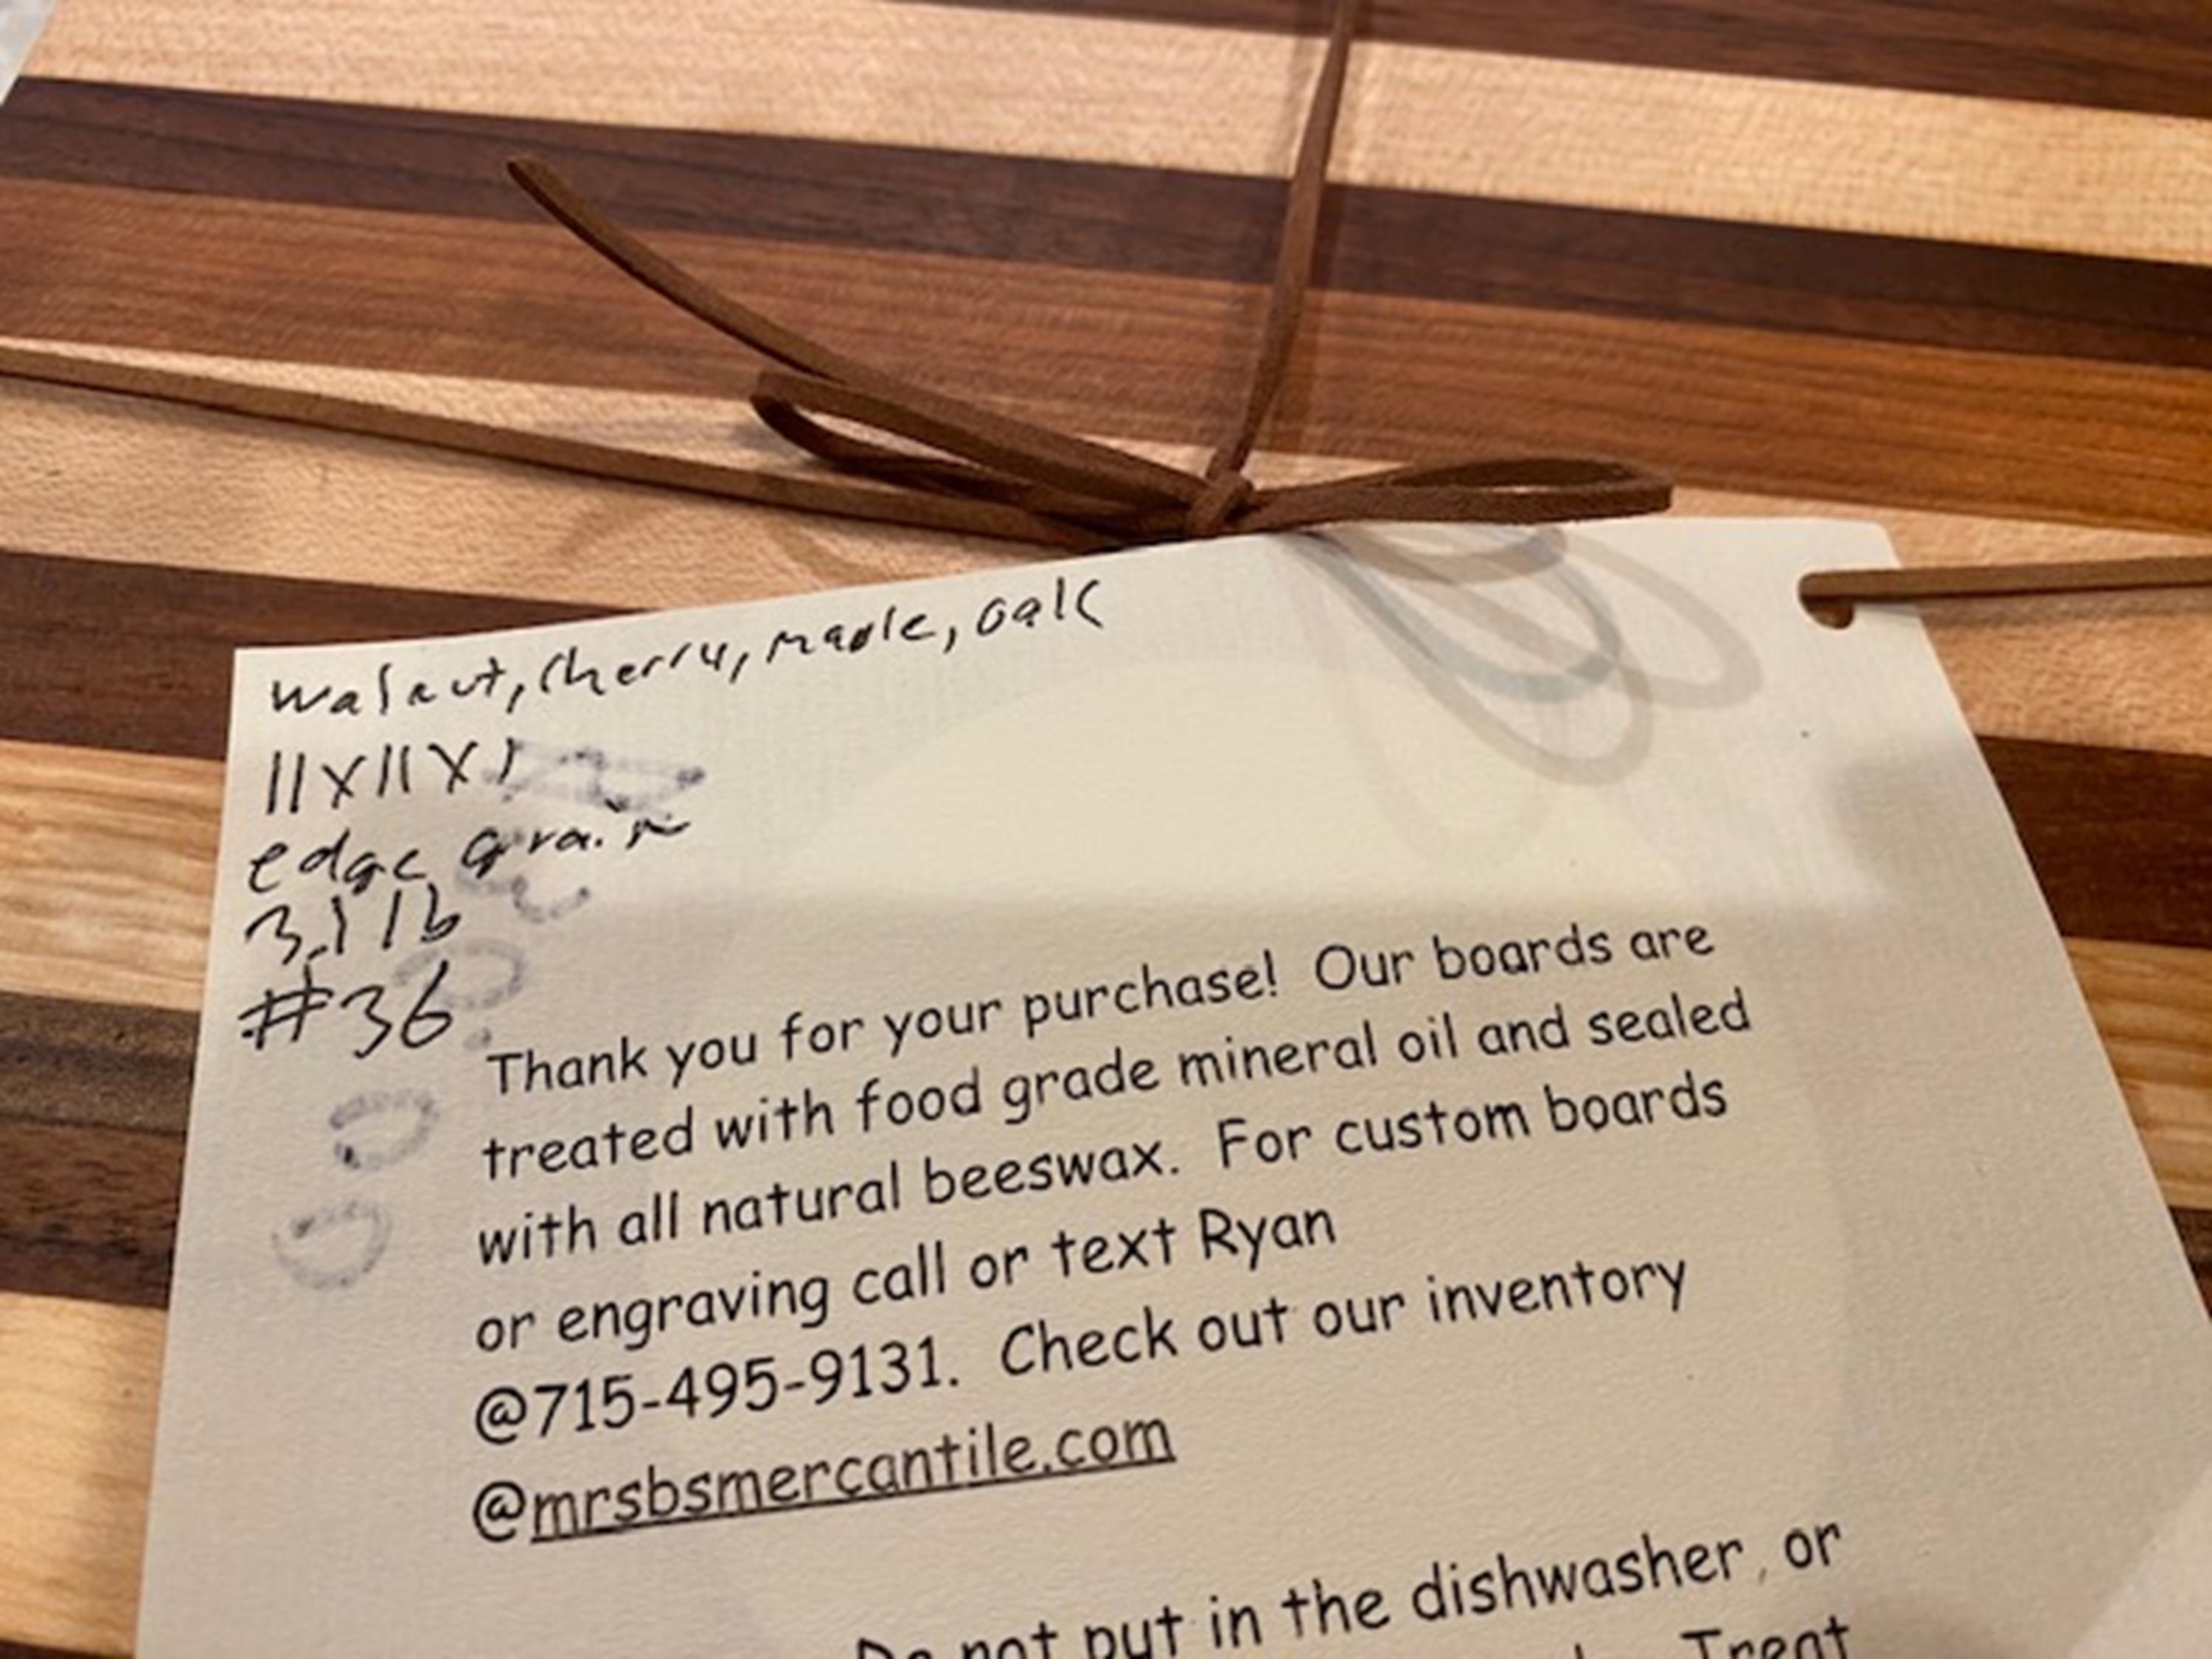 walnut, cherry, maple, oak
11x11x1
edge grain
3.1 lb
#36
Thank you for your purchase! Our boards are
treated with food grade mineral oil and sealed
with all natural beeswax. For custom boards
or engraving call or text Ryan
@715-495-9131. Check out our inventory
@mrsbsmercantile.com
Do not put in the dishwasher, or
Treat